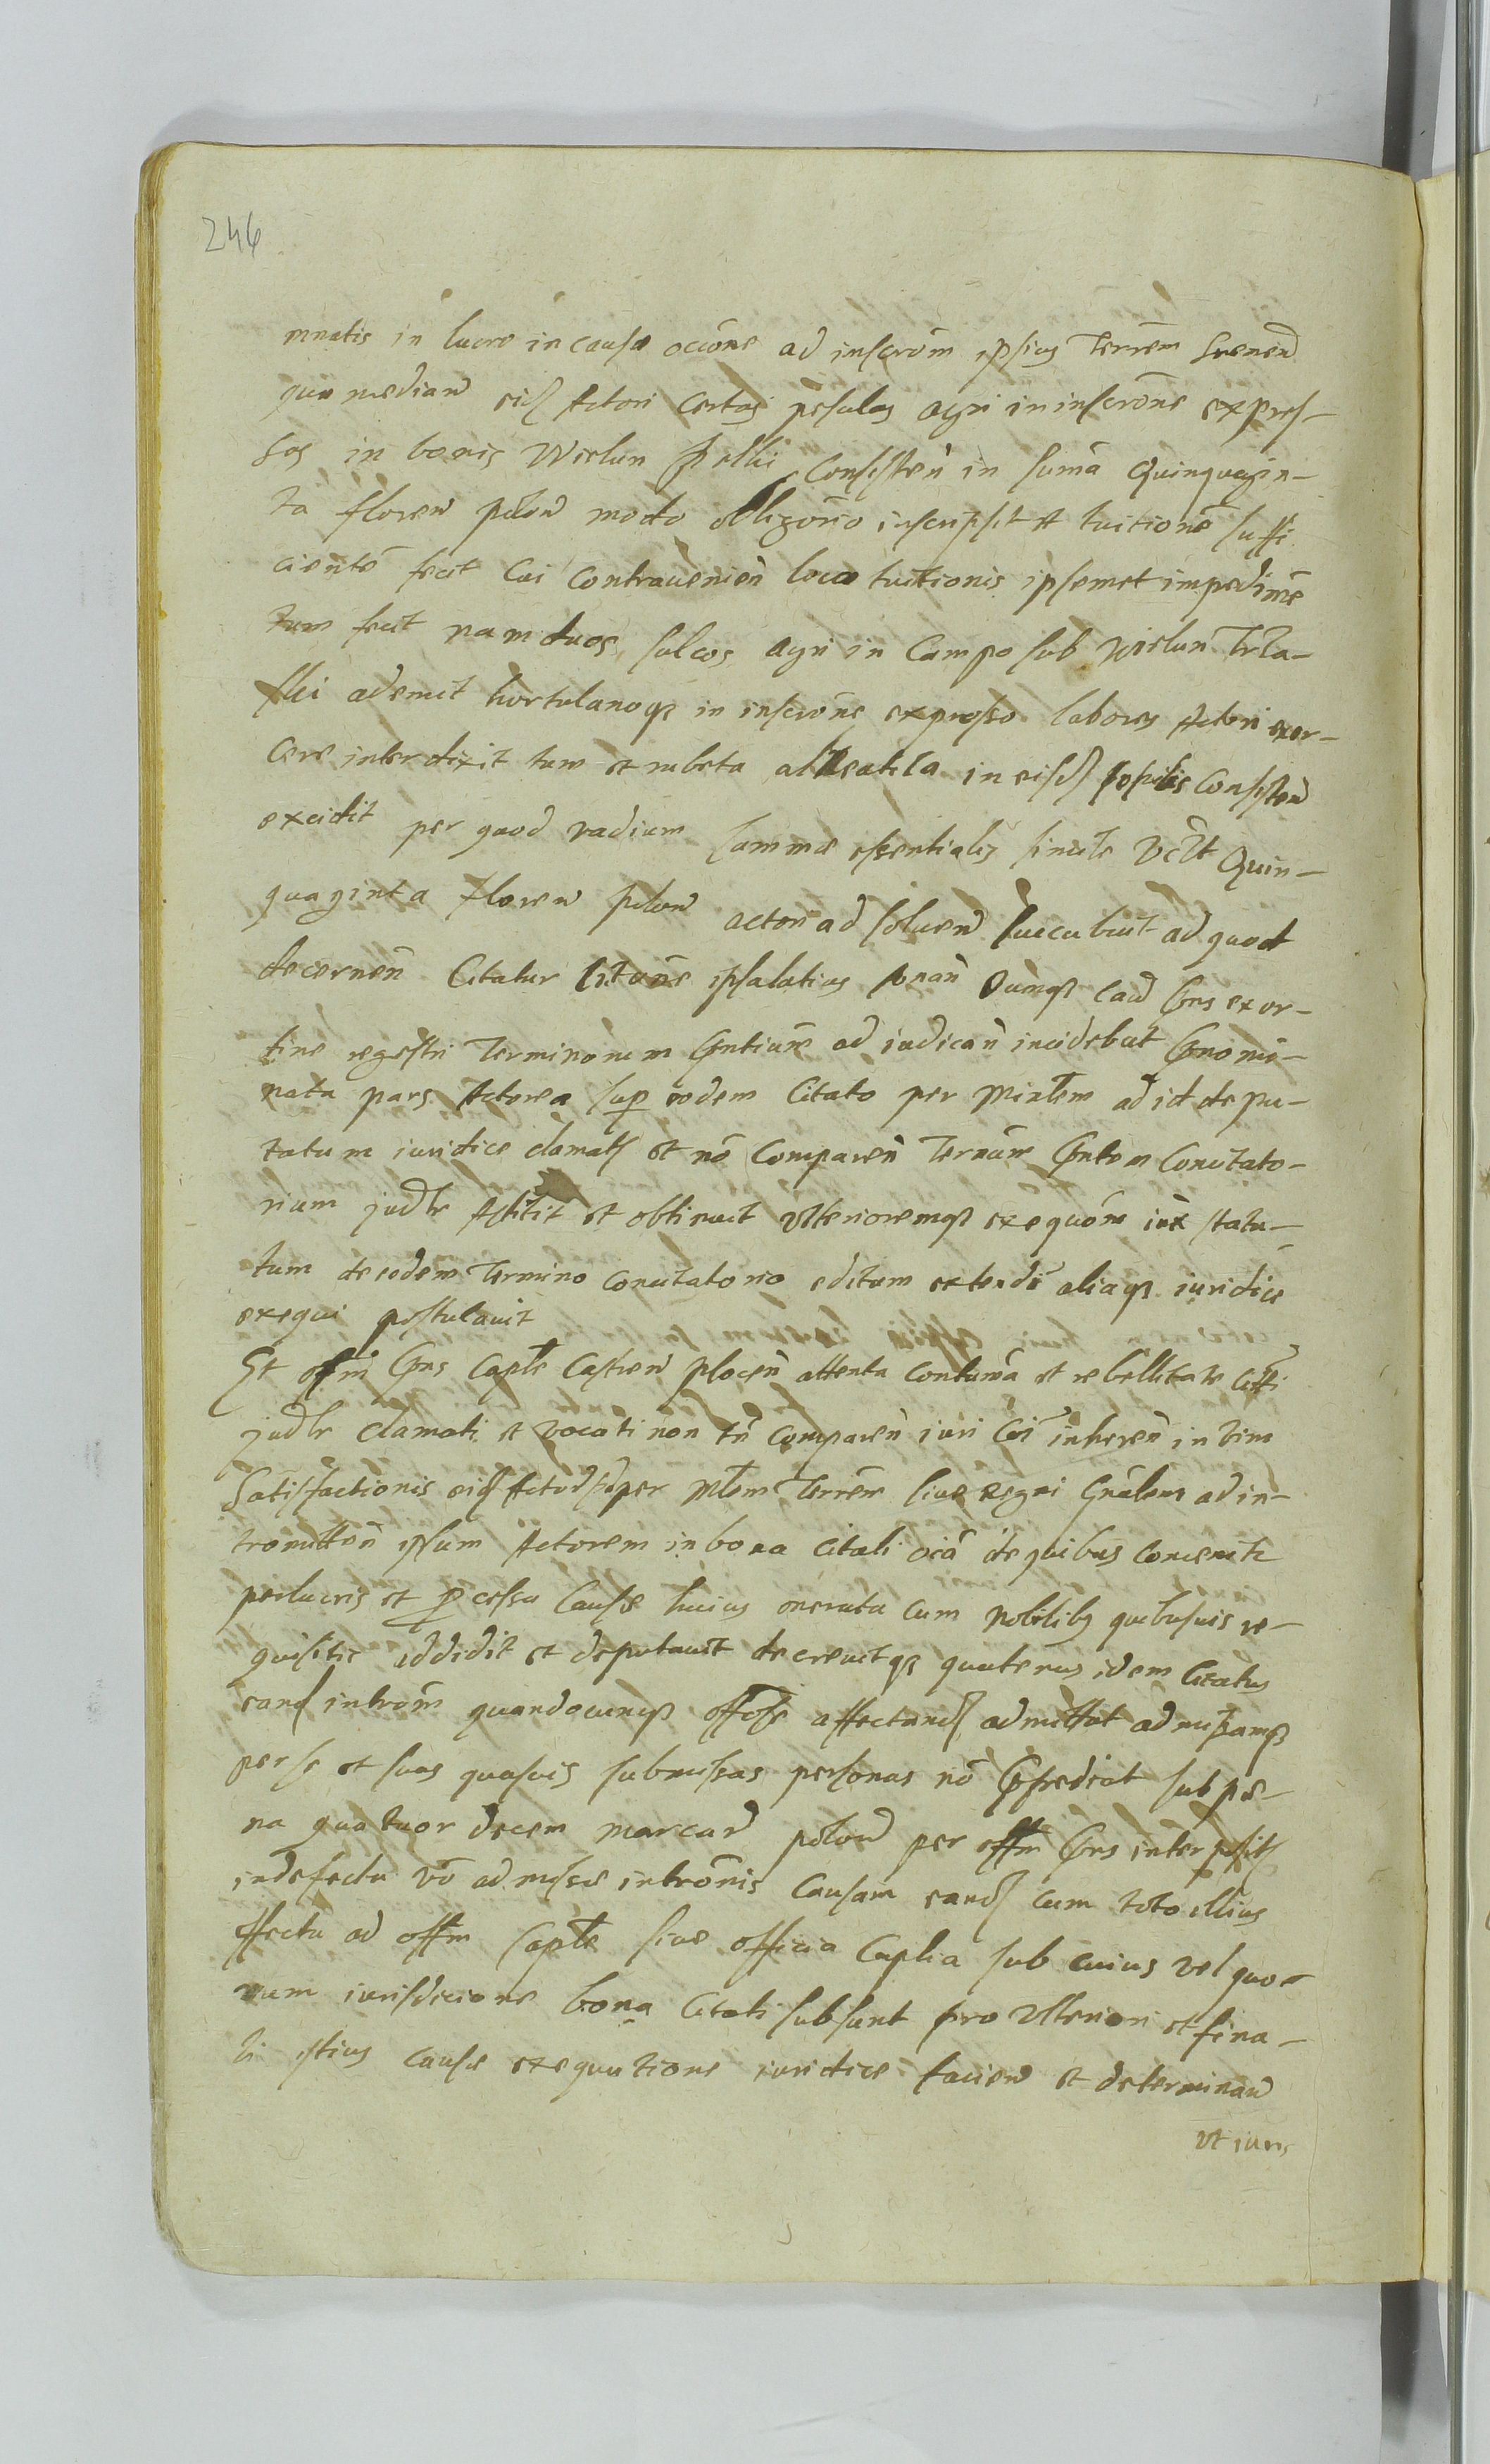 246
mnatis in lucro in causa occōne ad inscrōm ipsius Terrēm Srenen̄
qua median̄ eid Actori certas pesulas agri in inscrōne expres-
sos in bonis Wielun consisten̄ in sumā Quinquagin-
ta floren̄ polon̄ modo obligōrio inscripsit et tuitionē suffi
cientē fecit Cui contravenien̄ loco tuitionis ipsemet impedimē
tum fecit nam duos sulcos agri in campo sub Wielun
ademit hortulanoqz in inscrōne expresso labores Actori exer-
cere interdixit tum et rubeta in eisd consisten̄
excidit per quod vadium summae essentialis simile vēlt Quin-
quaginta floren̄ polon̄ actori ad solven̄ succubuit ad quod
decernen̄ Citatur ipsa latius sonan̄ Dumqz cau̅ p̄ns ex or-
dine regestri Terminorum p̄ntium ad iudican̄ incidebat p̄nomi-
nata pars Actorea sup eodem Citato per Mīnlem ad id depu-
tatum iuridice clamatᷤ et nō comparen̄ Termīm p̄ntem Conutato-
rium jud̄lr Astitit et obtinuit ulterioremqz exequōm iux statu-
tum de eodem Termino conutatorio editum extendi aliaqz iuridice
exequi postulavit
Et offm p̄ns Capt̄le Castren̄ plocen̄ attenta contumā et rebellitate Citti
jud̄lr clamati et vocati non tn̄ comparen̄ iuri cōi inheren̄ in vim
Satisfactionis eid Actori per M̄lem Terrēm sive Regni Gnālem ad in-
tromitten̄ ipsum Actorem in bona Citati oiā de quibus convenitz
perlucris et p cessu Causae huius onerata cum nobilibz quibusvis re-
quisitis addidit et deputavit decrevitqz quatenus idem Citatus
eand introm̄ quandocunqz offose affectand admittat admissamqz
per se et suas quasvis submissas personas nō Impediat sub pe-
na quatuor decem marcar̄ polon̄ per offm p̄ns interposit
in defectu vō admissae intromīs Causam eand cum toto illius
effectu ad offm Capt̄le sive officia Caplia sub cuius vel quo-
rum iurisdicione bona Citati subsunt pro ulteriori et fina-
li istius causae exequutione iuridice facien̄ et determinan̄
ut iuris